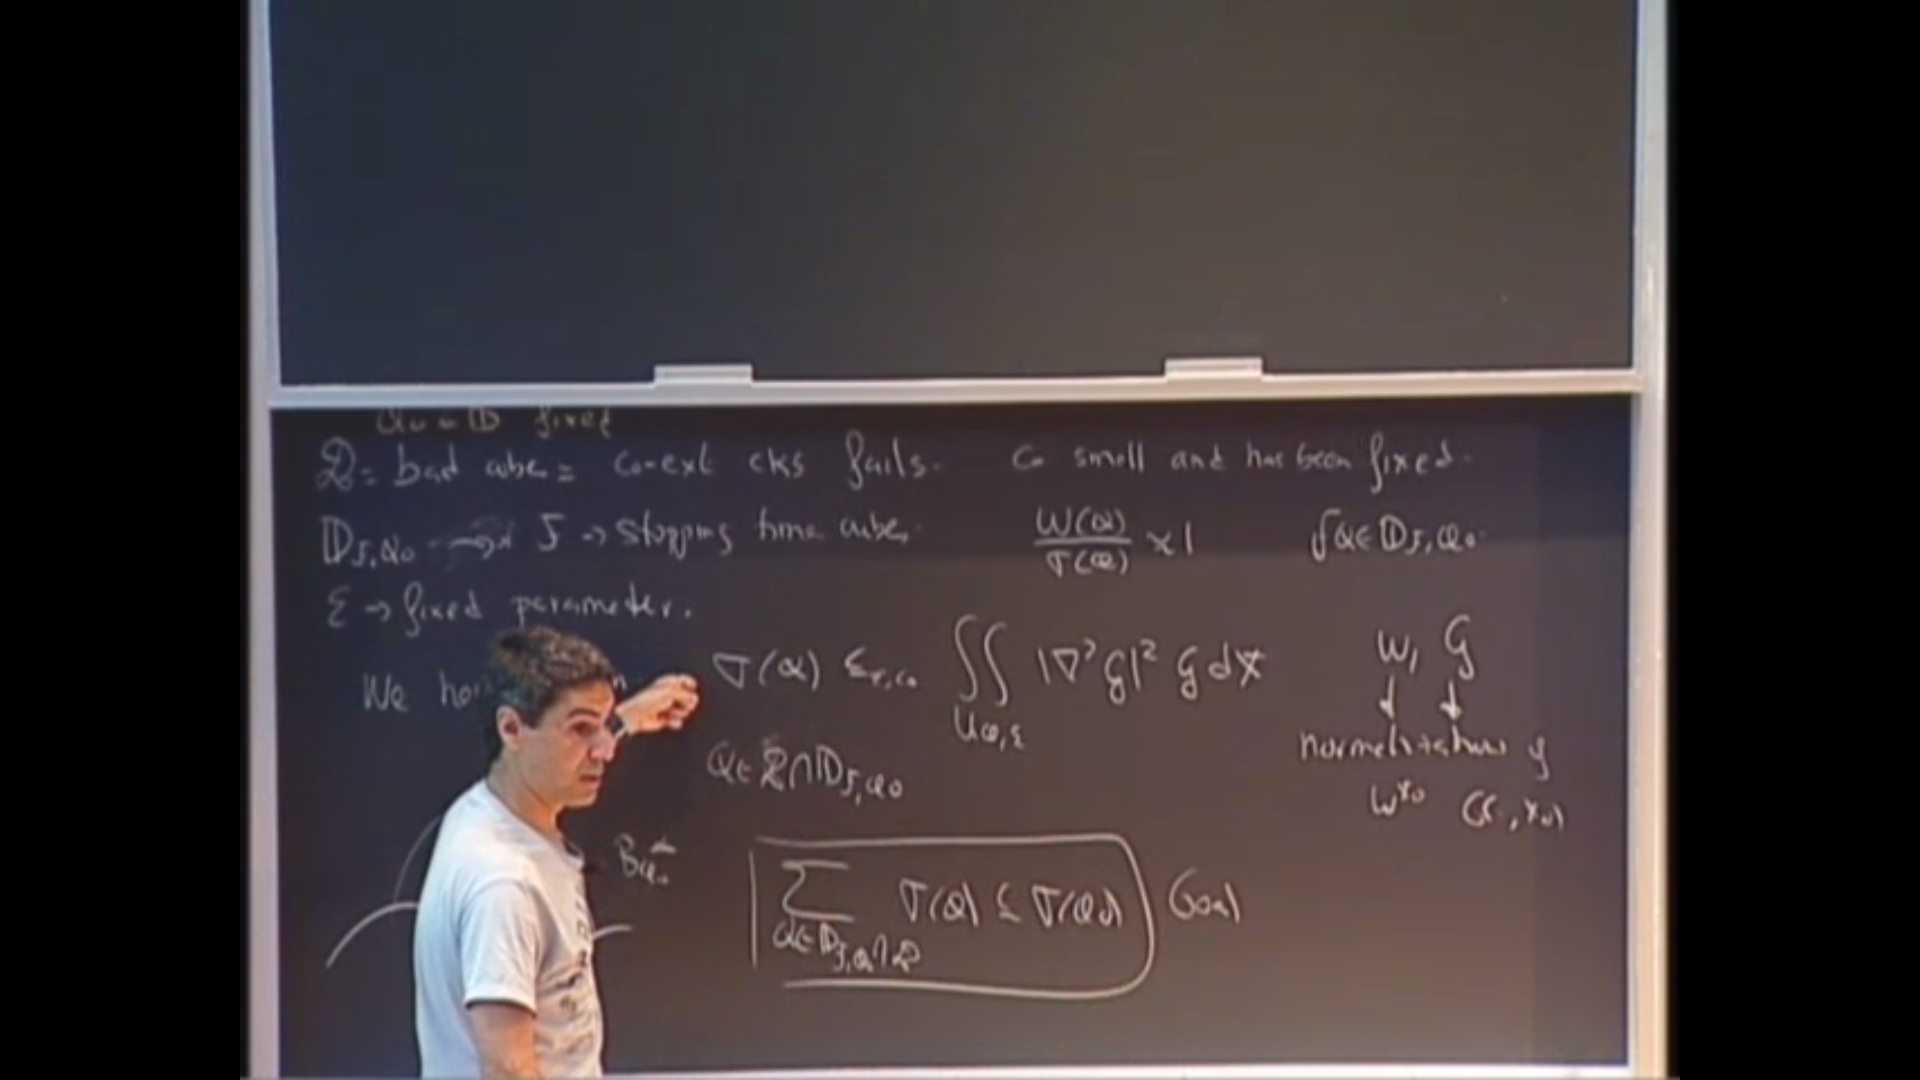 Q₀ ∈ 𝔻 fixed
ℬ = bad cube = c₀-ext cks fails. c₀ small and has been fixed.
𝔻_{ℱ,Q₀} → ℱ → stopping time cube. ω(Q)/σ(Q) ≍ 1 ∀Q∈𝔻_{ℱ,Q₀}.
ε → fixed parameter.
We σ(Q) ≲_{ε,c₀} ∬_{U_{Q,ε}} |∇²G|² G dX ω, G
Q ∈ ℬ ∩ 𝔻_{ℱ,Q₀} normalizations of
ω^{X₀} G(·, X₀)
∑_{Q∈𝔻_{ℱ,Q₀}∩ℬ} σ(Q) ≲ σ(Q₀) Goal